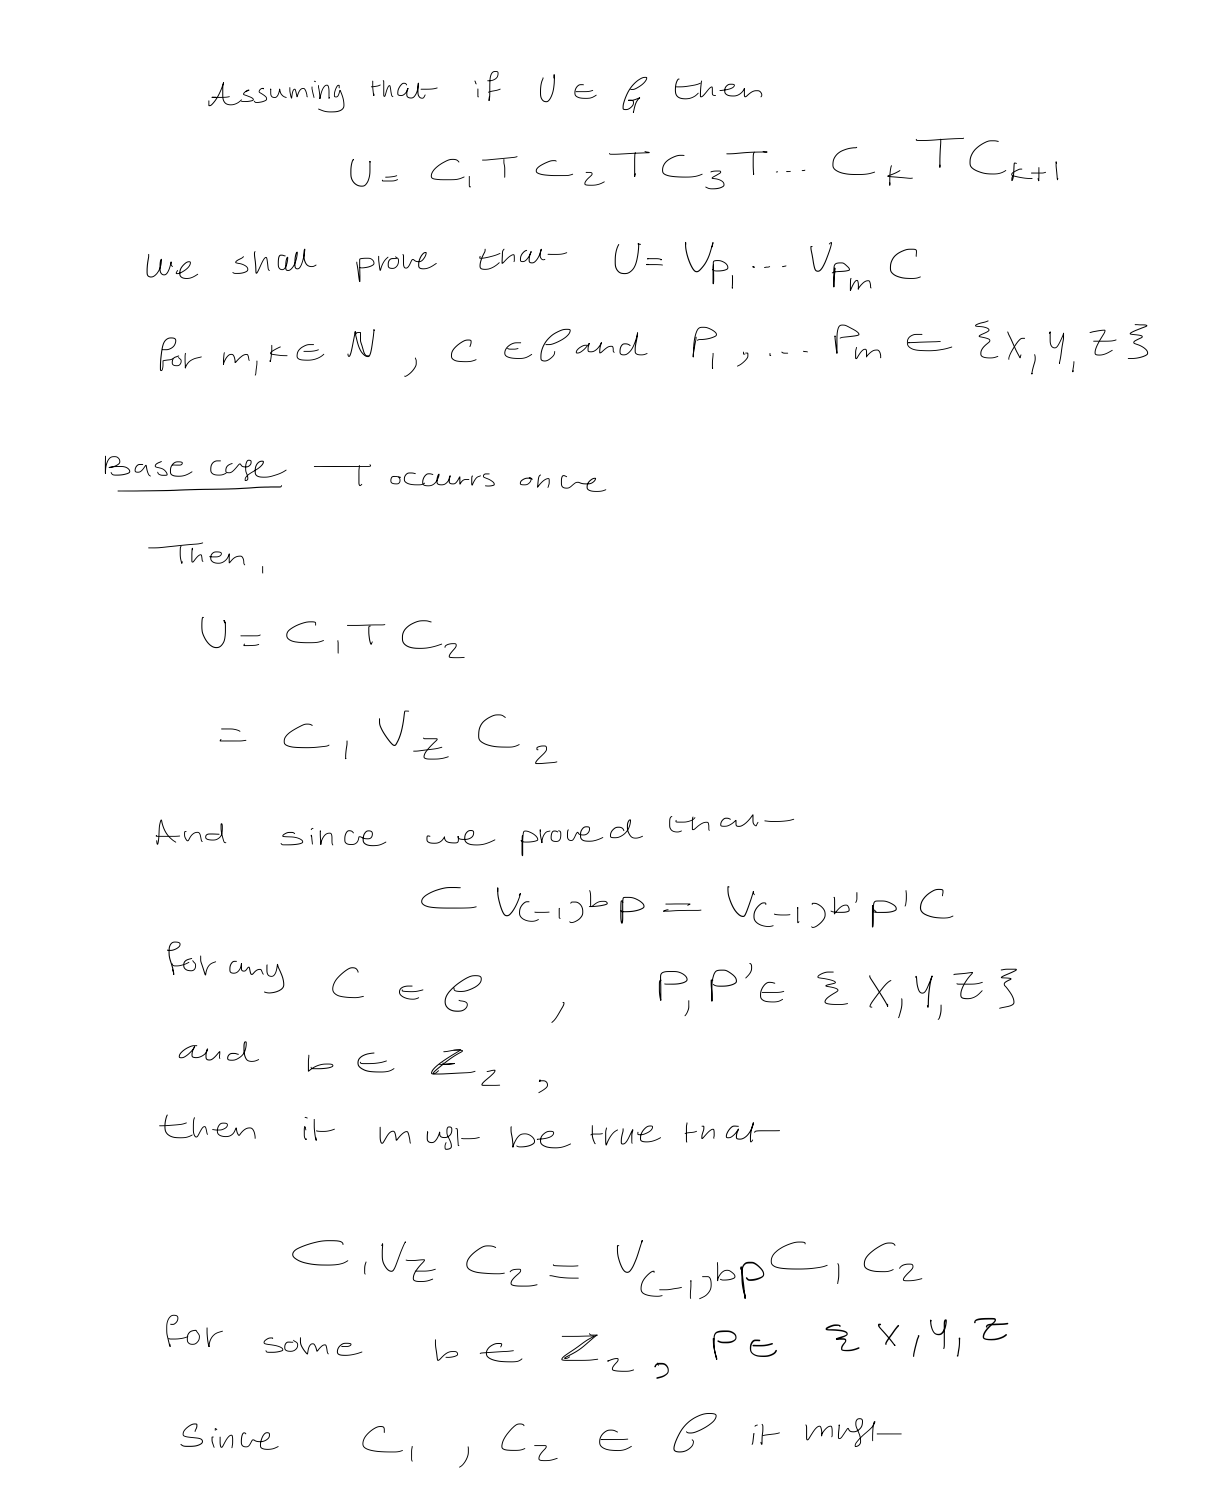 Assuming that if U ∈ G then
U = C₁ T C₂ T C₃ T ... Cₖ T Cₖ₊₁
We shall prove that U = V_P₁ ... V_Pₘ C
for m, k ∈ ℕ , C ∈ 𝒞 and P₁ , ... Pₘ ∈ {X, Y, Z}
Base case T occurrs once
Then,
U = C₁ T C₂
= C₁ V_Z C₂
And since we proved that
C V_(-1)^b P = V_(-1)^b' P' C
for any C ∈ 𝒞 , P, P' ∈ {X, Y, Z}
and b ∈ ℤ₂ ,
then it must be true that
C₁ V_Z C₂ = V_(-1)^b P C₁ C₂
for some b ∈ ℤ₂ , P ∈ {X, Y, Z
Since C₁ , C₂ ∈ 𝒞 it must